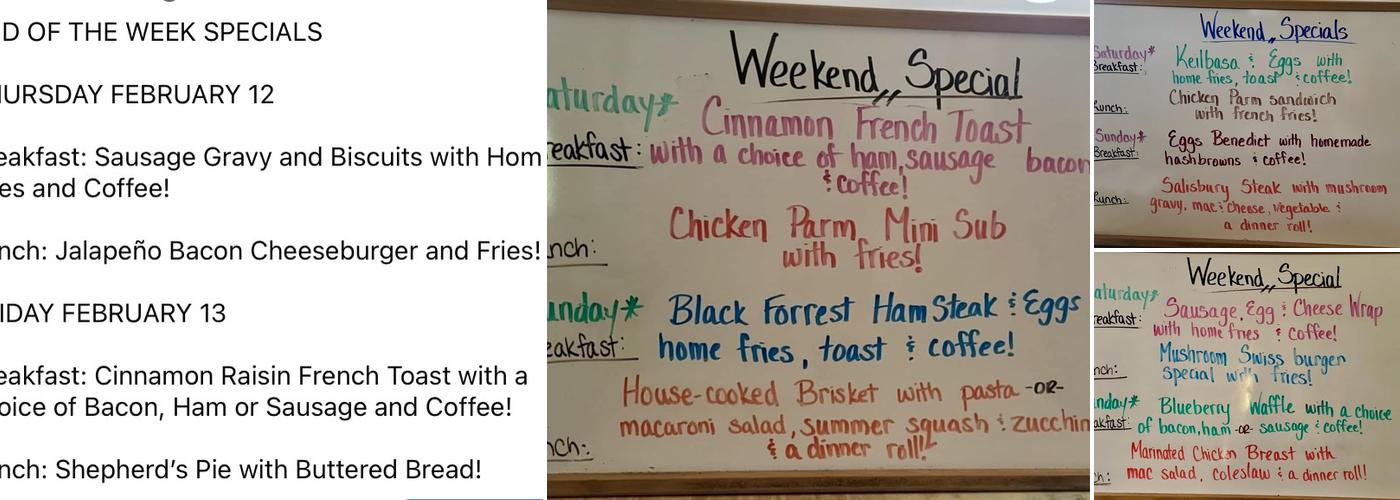 D OF THE WEEK SPECIALS
URSDAY FEBRUARY 12
eakfast: Sausage Gravy and Biscuits with Hom
es and Coffee!
nch: Jalapeño Bacon Cheeseburger and Fries!
IDAY FEBRUARY 13
eakfast: Cinnamon Raisin French Toast with a
oice of Bacon, Ham or Sausage and Coffee!
nch: Shepherd’s Pie with Buttered Bread!
Weekend,, Special
aturday*
Cinnamon French Toast
eakfast: with a choice of ham, sausage bacon
& coffee!
nch:
Chicken Parm Mini Sub
with fries!
unday* Black Forrest Ham Steak & Eggs
eakfast: home fries, toast & coffee!
House-cooked Brisket with pasta -OR-
macaroni salad, summer squash & zucchin
nch: & a dinner roll!
Weekend,, Specials
Saturday* Keilbasa & Eggs with
Breakfast: home fries, toast & coffee!
Lunch: Chicken Parm sandwich
with french fries!
Sunday* Eggs Benedict with homemade
Breakfast: hashbrowns & coffee!
Lunch: Salisbury Steak with mushroom
gravy, mac & cheese, vegetable &
a dinner roll!
Weekend,, Special
aturday* Sausage, Egg & Cheese Wrap
eakfast: with home fries & coffee!
nch: Mushroom Swiss burger
special with fries!
nday* Blueberry Waffle with a choice
akfast: of bacon, ham -OR- sausage & coffee!
Marinated Chicken Breast with
h: mac salad, coleslaw & a dinner roll!